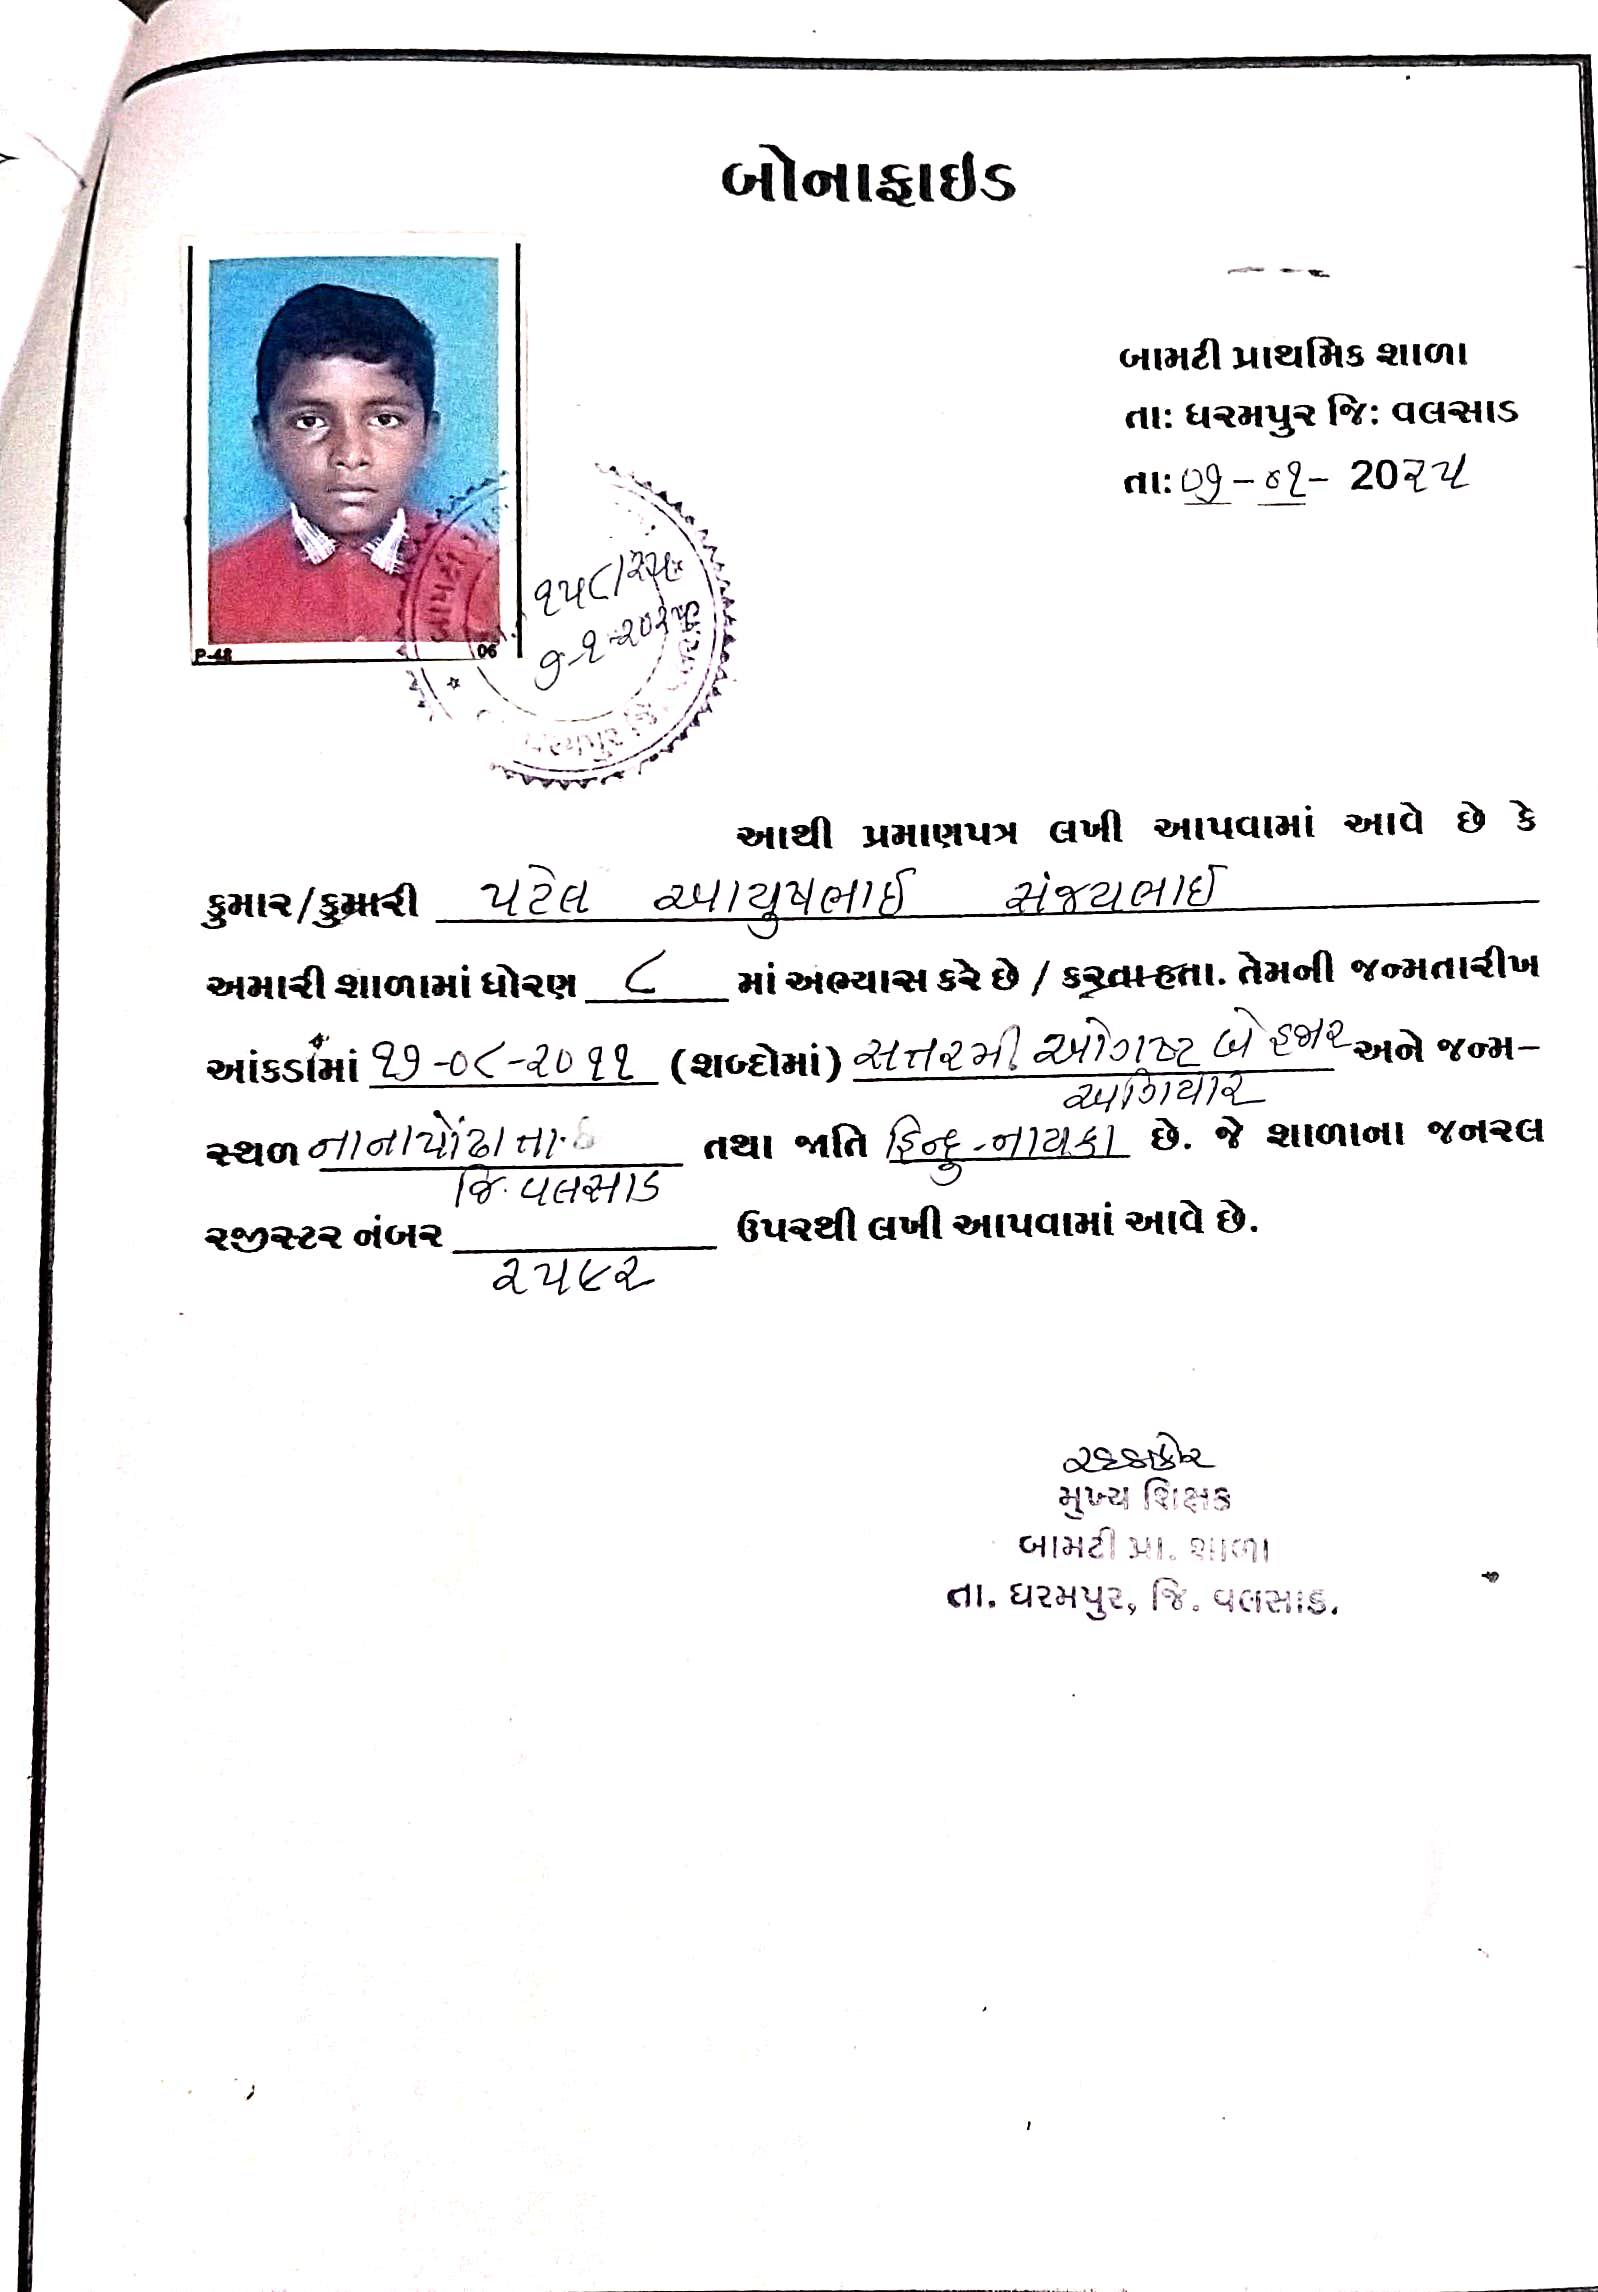 બોનાફાઇડ
બામટી પ્રાથમિક શાળા
તા: ધરમપુર જિ: વલસાડ
તા: ૦૭-૦૧- 20૨૫
૧૫૮/૨૫
૭-૧-૨૦૨૫
P-48 06
ધરમપુર
આથી પ્રમાણપત્ર લખી આપવામાં આવે છે કે
કુમાર/કુમારી પટેલ આયુષભાઈ સંજયભાઈ
અમારી શાળામાં ધોરણ ૮ માં અભ્યાસ કરે છે / કરતા હતા. તેમની જન્મતારીખ
આંકડામાં ૧૭-૦૮-૨૦૧૧ (શબ્દોમાં) સત્તરમી ઓગષ્ટ બે હજાર અને જન્મ-
અગિયાર
સ્થળ નાનાપોંઢા તા. તથા જાતિ હિન્દુ-નાયકા છે. જે શાળાના જનરલ
જિ. વલસાડ
રજીસ્ટર નંબર ઉપરથી લખી આપવામાં આવે છે.
૨૫૯૨
મુખ્ય શિક્ષક
બામટી પ્રા. શાળા
તા. ધરમપુર, જિ. વલસાડ.